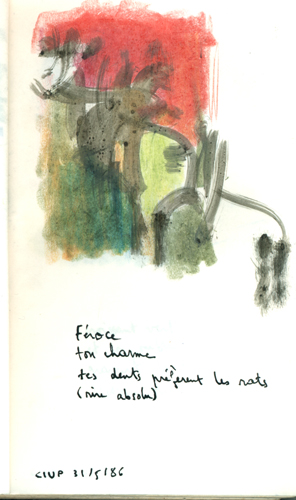 Féroce
ton charme
tes dents préfèrent les rats
(rire absolu)
CIUP 31/5/86